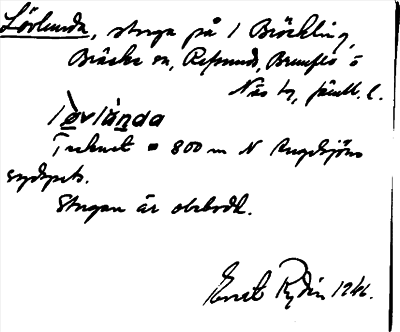 Lövlunda, stuga på 1 Bräcklinge,
Bräcke sn, Refsunds, Brunflo o
Näs tg, Jämtl. l.
lø̀vlànda
Trekvet = 800 m N
sydspets.
Stugan är obebodd.
Ernst Rydin 1946.